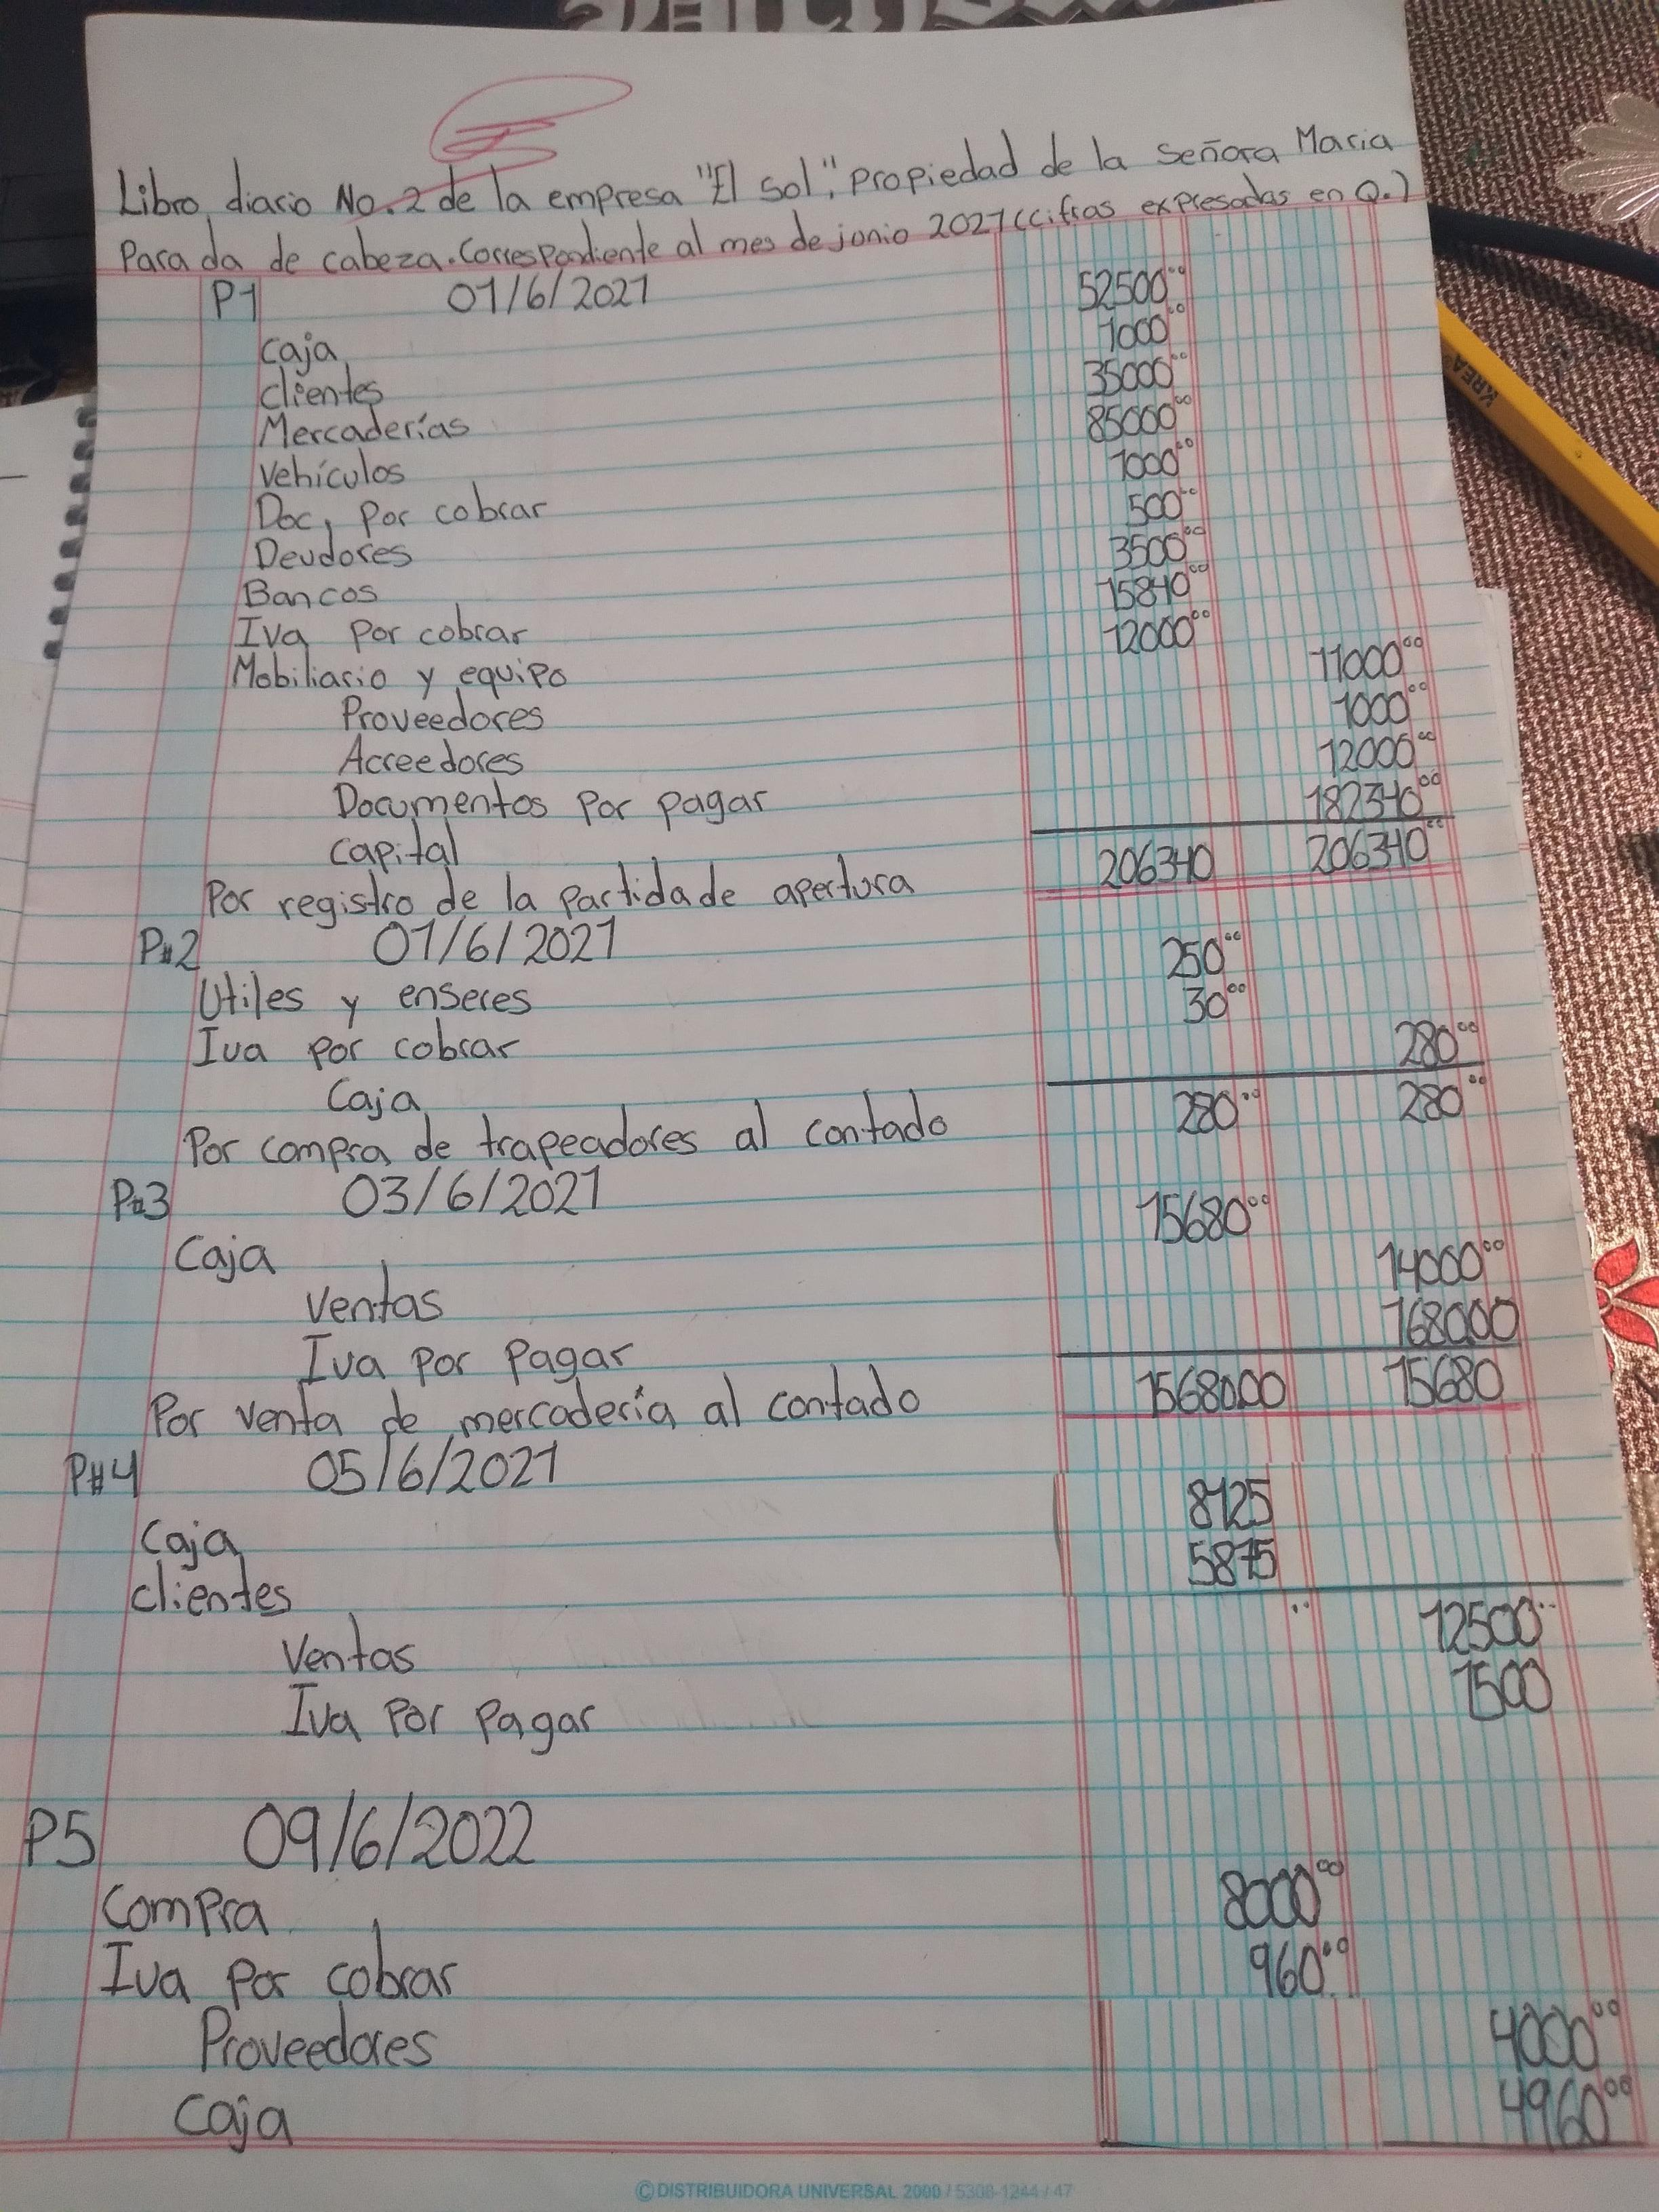 Libro diario No. 2 de la empresa "El sol", propiedad de la señora Maria
Parada de cabeza. Correspondiente al mes de junio 2021 (cifras expresadas en Q.)
P1 01/6/2021 52500.00
Caja 1000.00
clientes 35000.00
Mercaderías 85000.00
Vehículos 1000.00
Doc, por cobrar 500.00
Deudores 3500.00
Bancos 15840.00
Iva por cobrar 12000.00
Mobiliario y equipo 11000.00
Proveedores 1000.00
Acreedores 12000.00
Documentos por pagar 182340.00
Capital 206340 206340.00
Por registro de la partida de apertura
P#2 01/6/2021 250.00
Utiles y enseres 30.00
Iva por cobrar 280.00
Caja 280.00 280.00
Por compra de trapeadores al contado
P#3 03/6/2021 15680.00
Caja 14000.00
Ventas 1680.00
Iva por pagar 15680.00 15680
Por venta de mercadería al contado
P#4 05/6/2021 8125
Caja 5875
clientes 12500
Ventas 1500
Iva por pagar
P5 09/6/2022
Compra 8000.00
Iva por cobrar 960.00
Proveedores 4000.00
Caja 4960.00
© DISTRIBUIDORA UNIVERSAL 2000 / 5308-1244 / 47
KREA